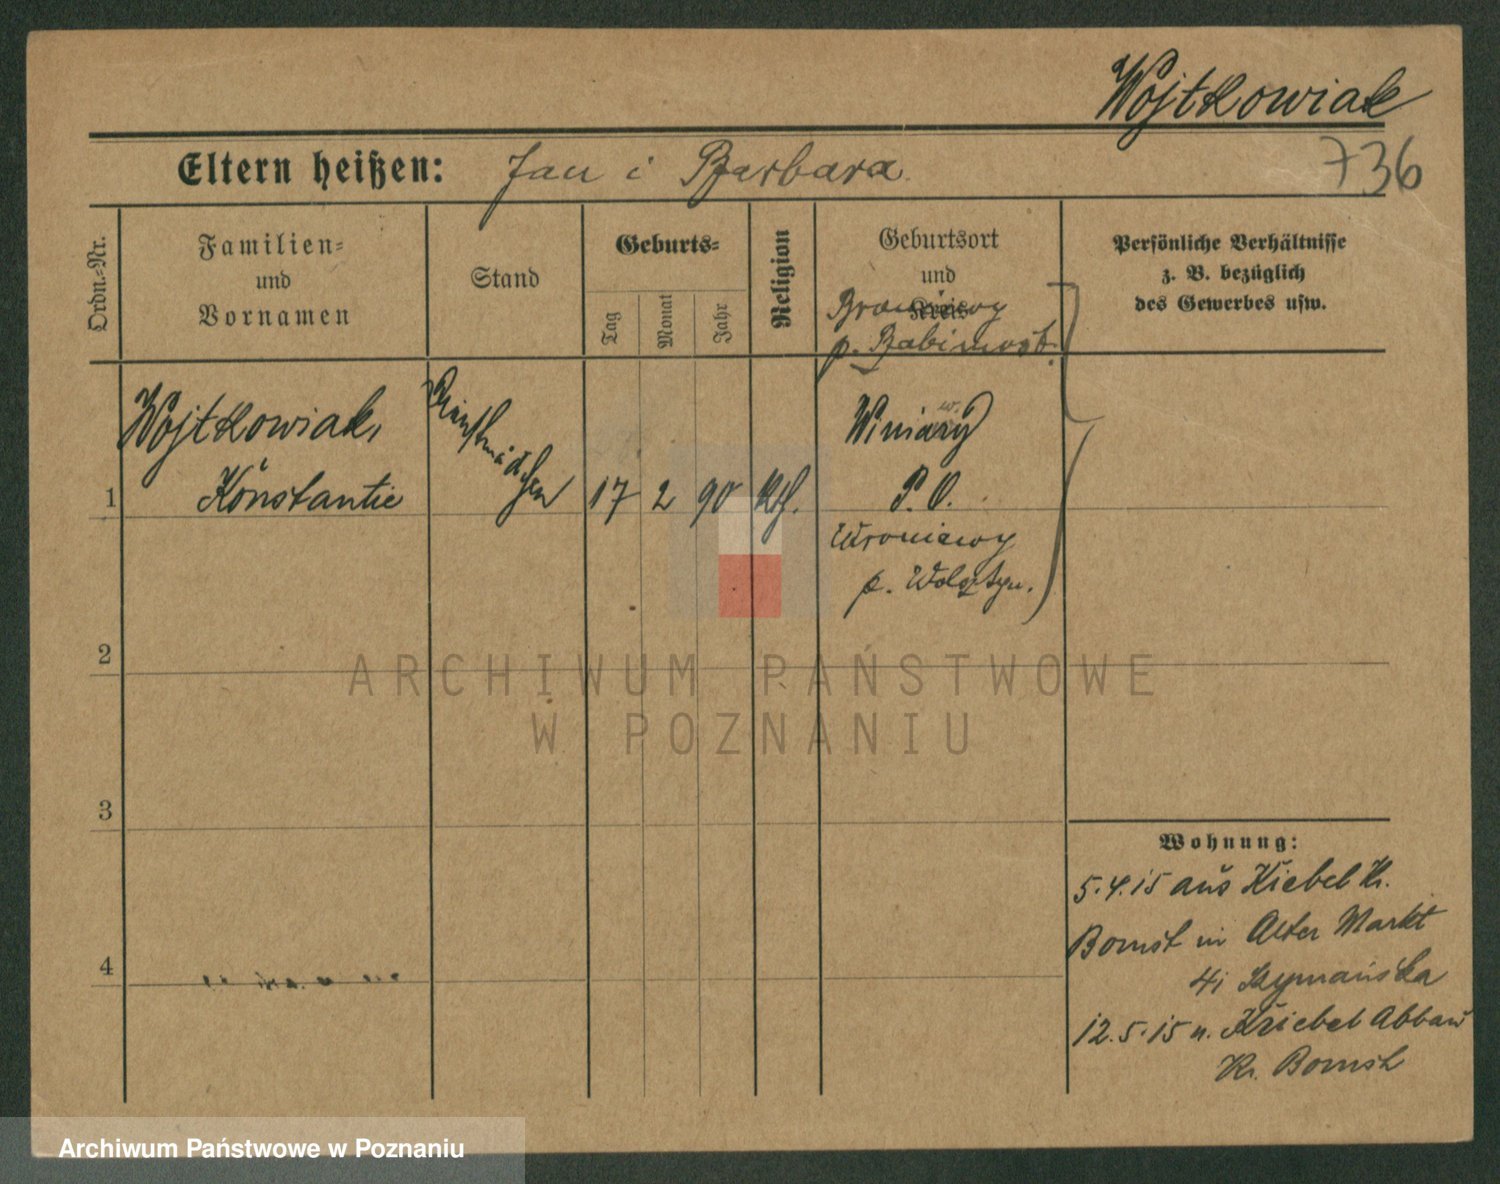 Wojtkowiak
736
Eltern heißen: Jan i Barbara
Ordn.-Nr.
Familien-
und
Vornamen
Stand
Geburts-
Tag
Monat
Jahr
Religion
Geburtsort
und
Kreis
p. Babimost.
Persönliche Verhältnisse
z. B. bezüglich
des Gewerbes usw.
Wojtkowiak,
Konstantie
1
Dienstmädchen
17 2 90 kth.
Winiary
P. O.
Wroniawy
p. Wolsztyn.
2
3
4
Wohnung:
5.4.15 aus Kiebel Kr.
Bomst in Alter Markt
41 Szymańska
12.5.15 n. Kiebel Abbau
Kr. Bomst
ARCHIWUM PAŃSTWOWE
W POZNANIU
Archiwum Państwowe w Poznaniu